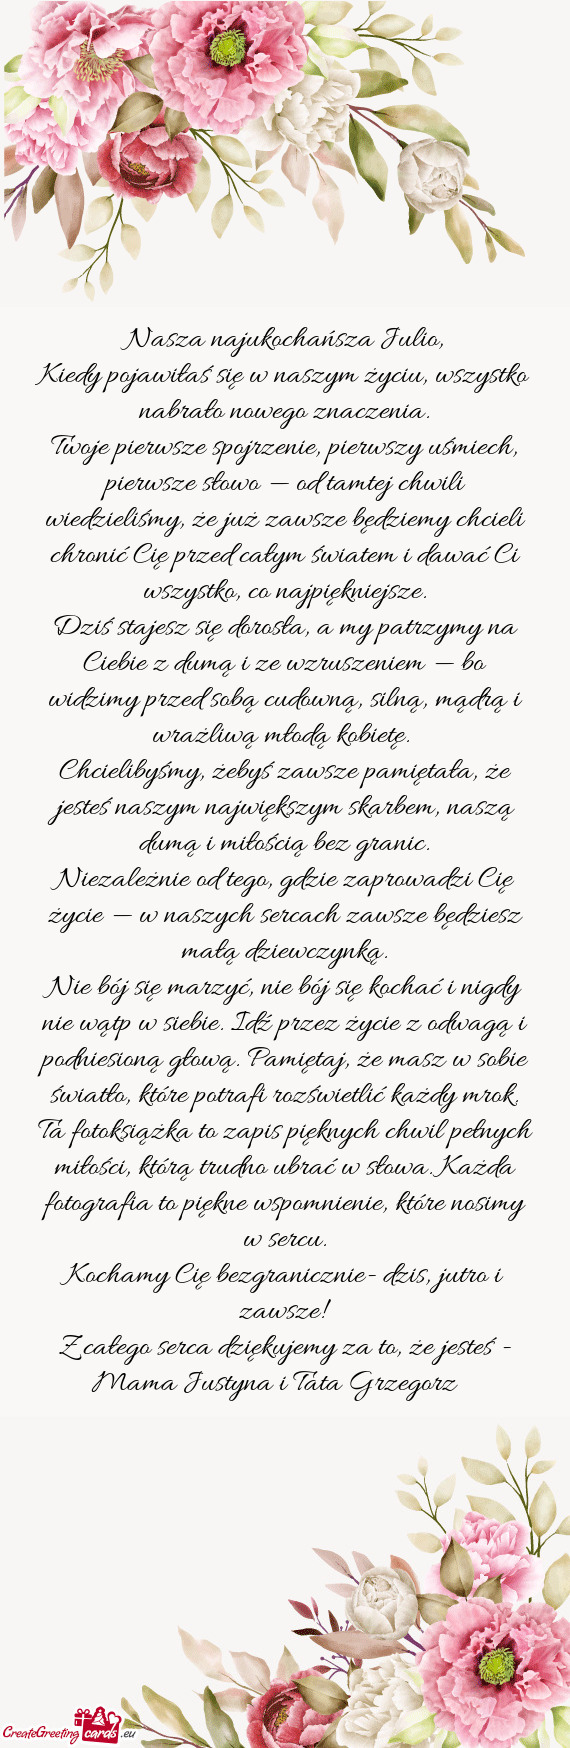 Nasza najukochańsza Julio,
Kiedy pojawiłaś się w naszym życiu, wszystko
nabrało nowego znaczenia.
Twoje pierwsze spojrzenie, pierwszy uśmiech,
pierwsze słowo — od tamtej chwili
wiedzieliśmy, że już zawsze będziemy chcieli
chronić Cię przed całym światem i dawać Ci
wszystko, co najpiękniejsze.
Dziś stajesz się dorosła, a my patrzymy na
Ciebie z dumą i ze wzruszeniem — bo
widzimy przed sobą cudowną, silną, mądrą i
wrażliwą młodą kobietę.
Chcielibyśmy, żebyś zawsze pamiętała, że
jesteś naszym największym skarbem, naszą
dumą i miłością bez granic.
Niezależnie od tego, gdzie zaprowadzi Cię
życie — w naszych sercach zawsze będziesz
małą dziewczynką.
Nie bój się marzyć, nie bój się kochać i nigdy
nie wątp w siebie. Idź przez życie z odwagą i
podniesioną głową. Pamiętaj, że masz w sobie
światło, które potrafi rozświetlić każdy mrok.
Ta fotoksiążka to zapis pięknych chwil pełnych
miłości, którą trudno ubrać w słowa. Każda
fotografia to piękne wspomnienie, które nosimy
w sercu.
Kochamy Cię bezgranicznie- dzis, jutro i
zawsze!
Z całego serca dziękujemy za to, że jesteś -
Mama Justyna i Tata Grzegorz
CreateGreeting cards .eu